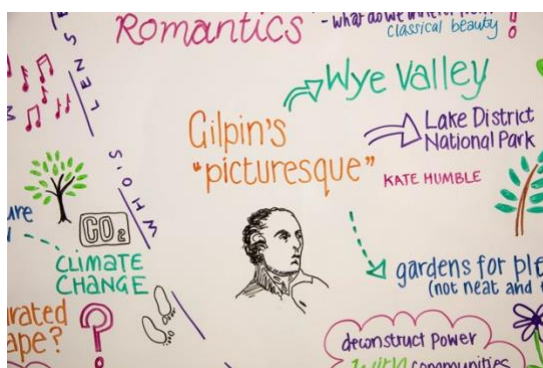 Romantics
- what do we
classical beauty?
LENSE
Wye Valley
Gilpin's
"picturesque"
Lake District
National Park
KATE HUMBLE
WHO'S
CO2
CLIMATE
CHANGE
gardens for ple
(not neat and
urated
ape?
deconstruct power
with communities